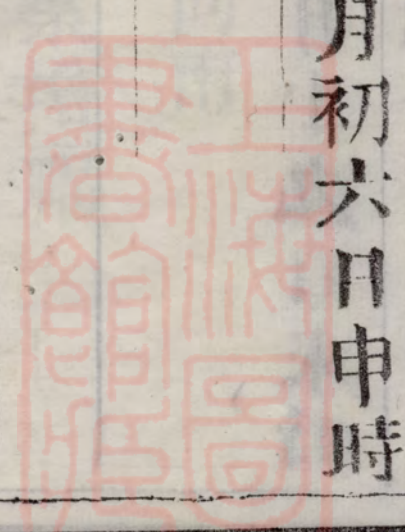 月初六日申時
上海圖
書館藏